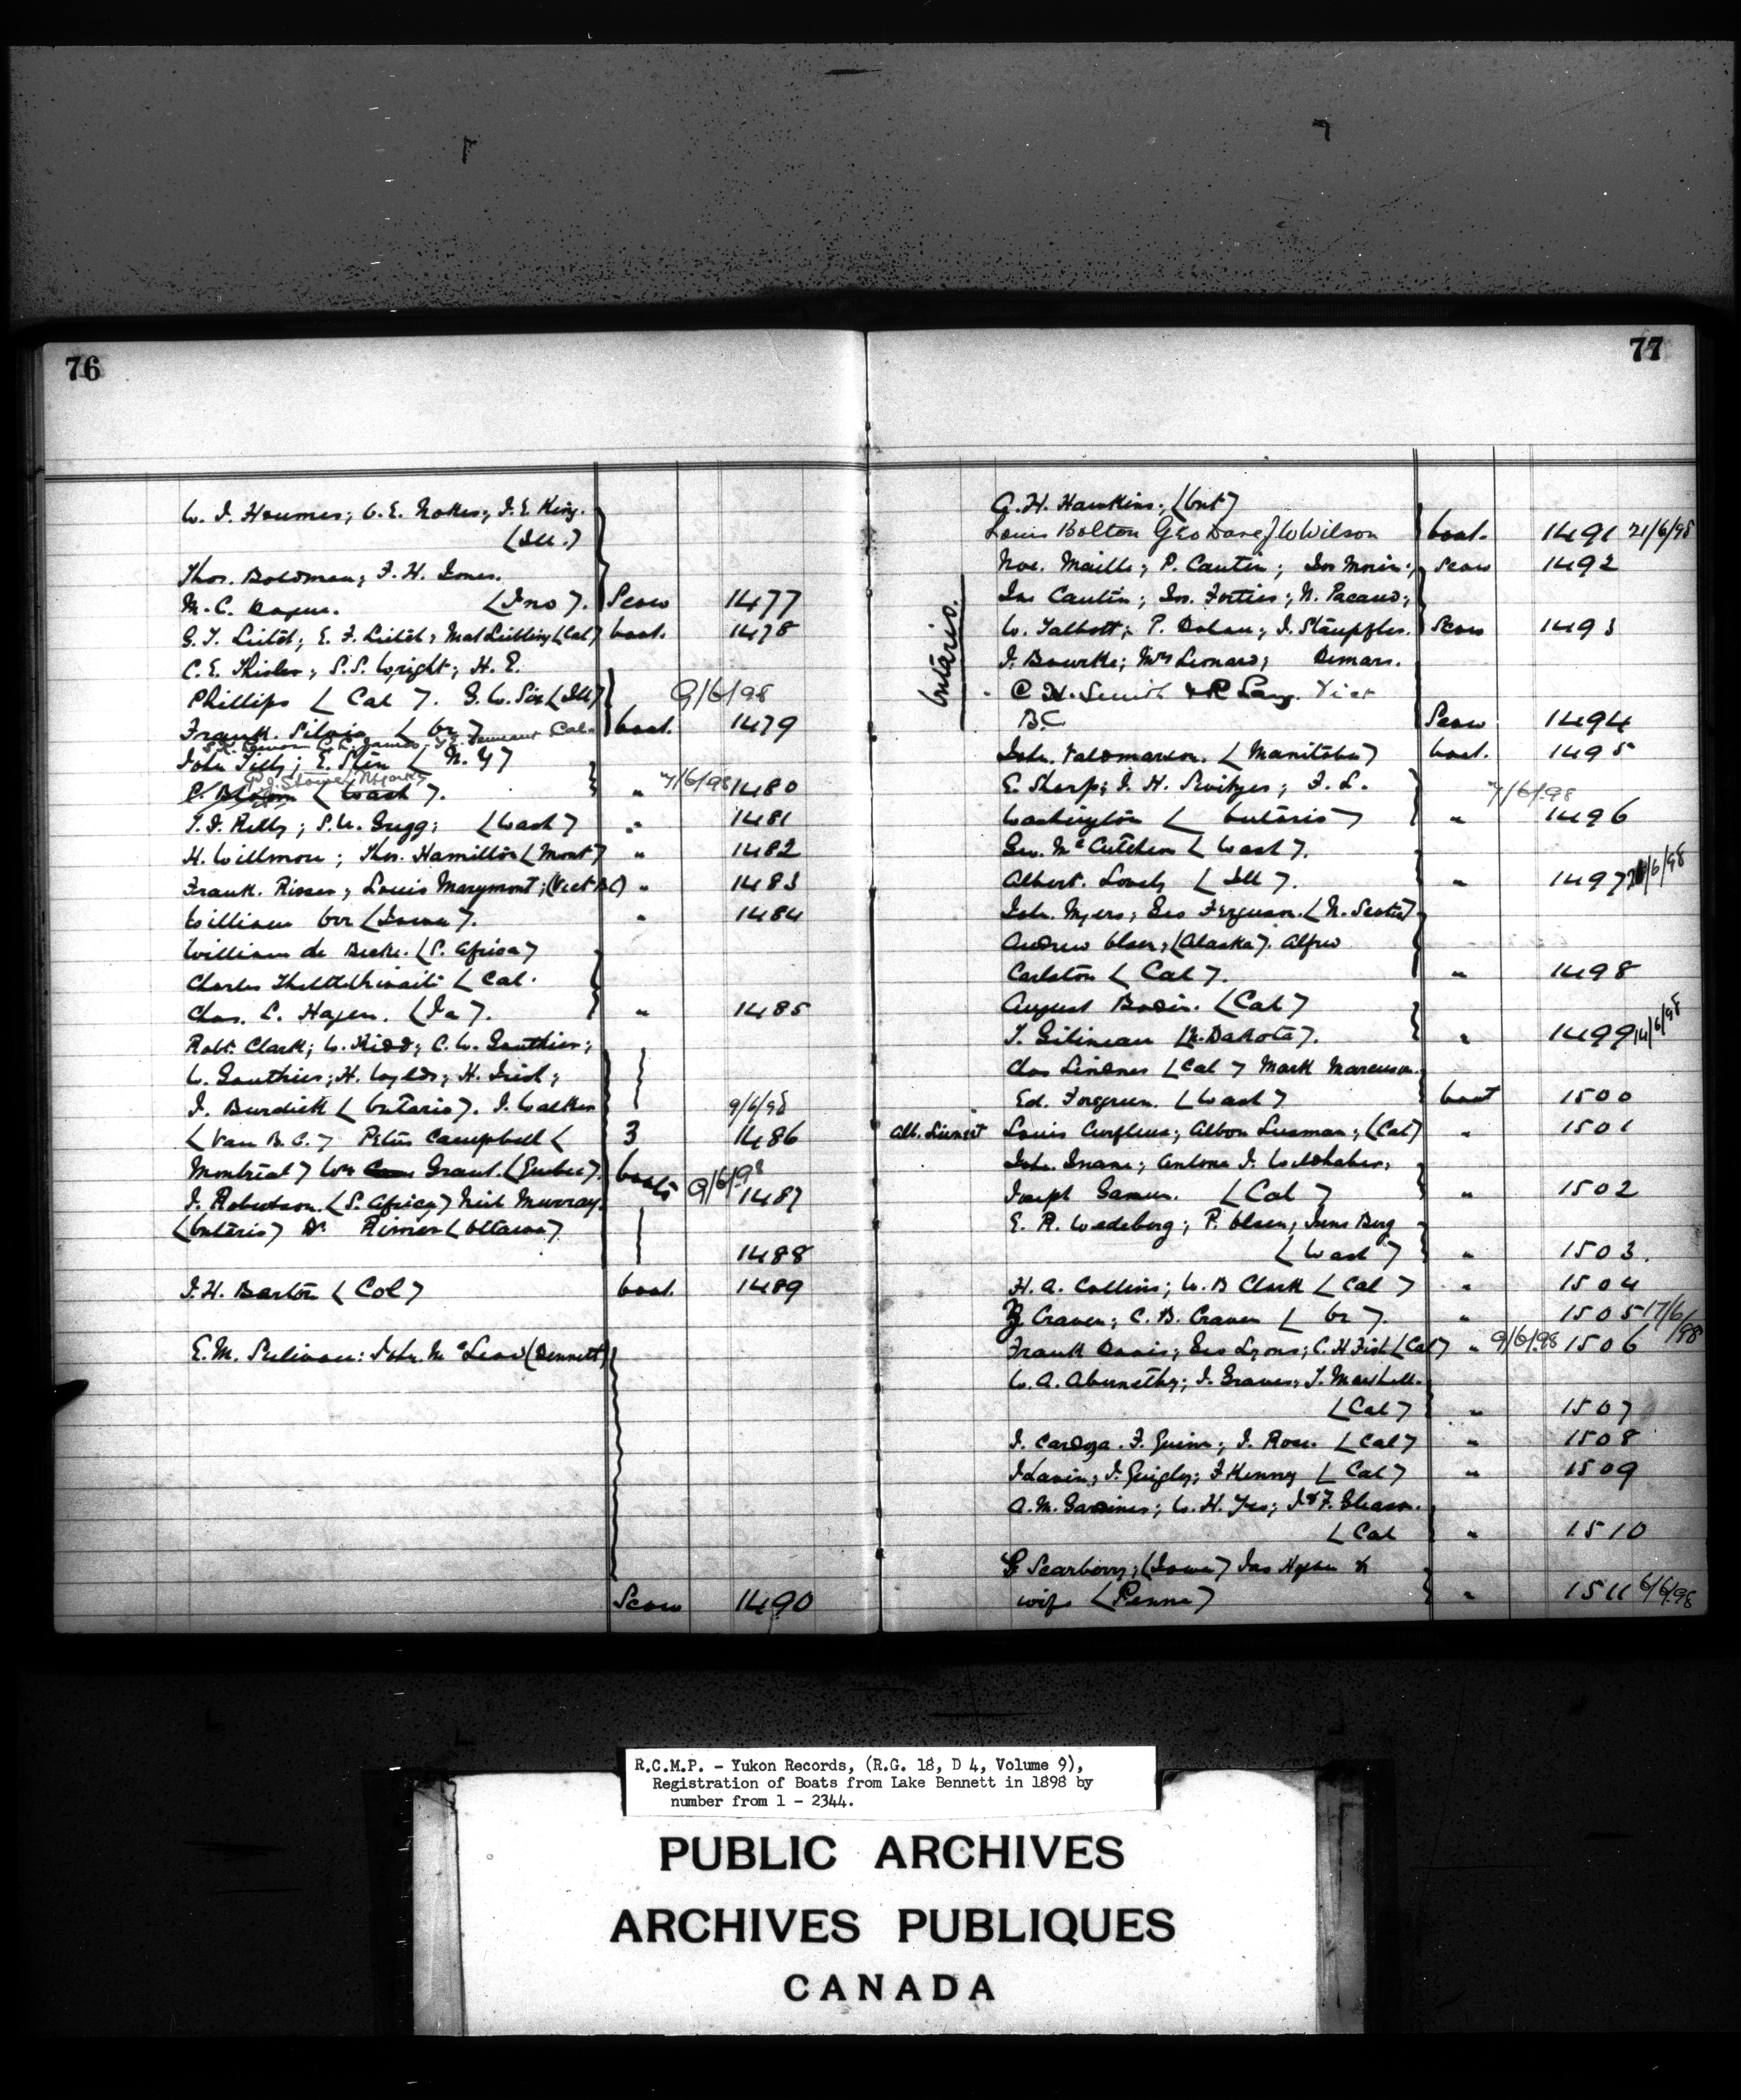 76
W. J. Houmes; C. E. Nokes; J. E. King.
(Ill.)
Thos. Boldman; F. H. Jones.
M. C. (Ino). Scow 1477
G. T. E. F. Mat (Cal) boat. 1478
C. E. S. S. Wright; H. E.
Phillips (Cal). G. W. Six (Ill) 9/6/98
Frank. Silvia (Or) boat. 1479
C. E. James Cal.
John Tilly; E. Stein (N. Y)
P. J. Stowe
C. Bloom (Wash). " 7/6/98 1480
T. J. Kelly; S. U. Grigg; (Wash) " 1481
H. Willmore; Thos. Hamilton (Mont) " 1482
Frank. Risser; Louis Marymont; (Vict BC) " 1483
William Orr (Iowa). " 1484
William de Beche. (S. Africa)
Charles (Cal.
Chas. L. Hagen. (Ia). " 1485
Robt. Clark; W. Kidd; C. W. Gauthier;
W. Gauthier; H. Wylds; H. Irish;
J. Burdick (Ontario). J. Walker 9/6/98
(Van B. C.) Peter Campbell ( 3 1486
Montreal) Wm Grant. (Quebec). boats 9/6/98 1487
J. Robertson. (S. Africa) Neil Murray.
(Ontario) Dr. (Ottawa)
1488
J. H. Barton (Col) boat. 1489
E. M. Sulivan: John. McLeod (Bennett)
Scow 1490
77
A. H. Hawkins; (Ont)
Louis Bolton Geo Dane J W Wilson boat. 1491 21/6/98
Noe. Maille; P. Cautin; Jos Morin; Scow 1492
Jas Cautin; Jos. Forties; N. Pacaud;
W. Talbott; P. Dolan; J. Stauffles. Scow 1493
J. Bourke; Mrs Leonard; Demars.
Ontario.
C H. Smith & R Lang. Vict
B C Scow 1494
John. Valdmarson. (Manitoba) boat. 1495
E. Sharp; J. H. Switzer; F. L. 7/6/98
Washington (Ontario) " 1496
Geo. McCutcheon (Wash).
Albert. Lovely (Ill). " 1497 /6/98
John. Myers; Geo Ferguson. (N. Scotia)
Andrew Olsen; (Alaska). Alfred
Carlston (Cal). " 1498
August Bodin. (Cal)
T. Gilinean (N. Dakota). " 1499 14/6/98
Chas Lindner (Cal) Mark Marcuson.
Ed. Forgreen. (Wash) boat 1500
Alb. Louis Albon Lusman; (Cal) " 1501
John. Antone J.
Joseph (Cal) " 1502
E. R. Wedeberg; P. Olsen; Jens Berg
(Wash) " 1503.
H. A. Collins; W. B Clark (Cal) " 1504
Craven; C. B. Craven (Or). " 1505 17/6/98
Frank Davis; Geo Lyons; C. H Fish (Cal) " 9/6/98 1506
W. A. Abernethy; J. Graves; T. Marshall.
(Cal) " 1507
J. Cardoza. F. Quinn; J. Rose. (Cal) " 1508
J Lavin; J. Quigley; F Kenny (Cal) " 1509
A. M. Gardiner; W. H. J & F. Gleason.
(Cal " 1510
Scarberry; (Iowa) Jas &
wife (Penna) " 1511 6/6/98
R.C.M.P. - Yukon Records, (R.G. 18, D 4, Volume 9),
Registration of Boats from Lake Bennett in 1898 by
number from 1 - 2344.
PUBLIC ARCHIVES
ARCHIVES PUBLIQUES
CANADA